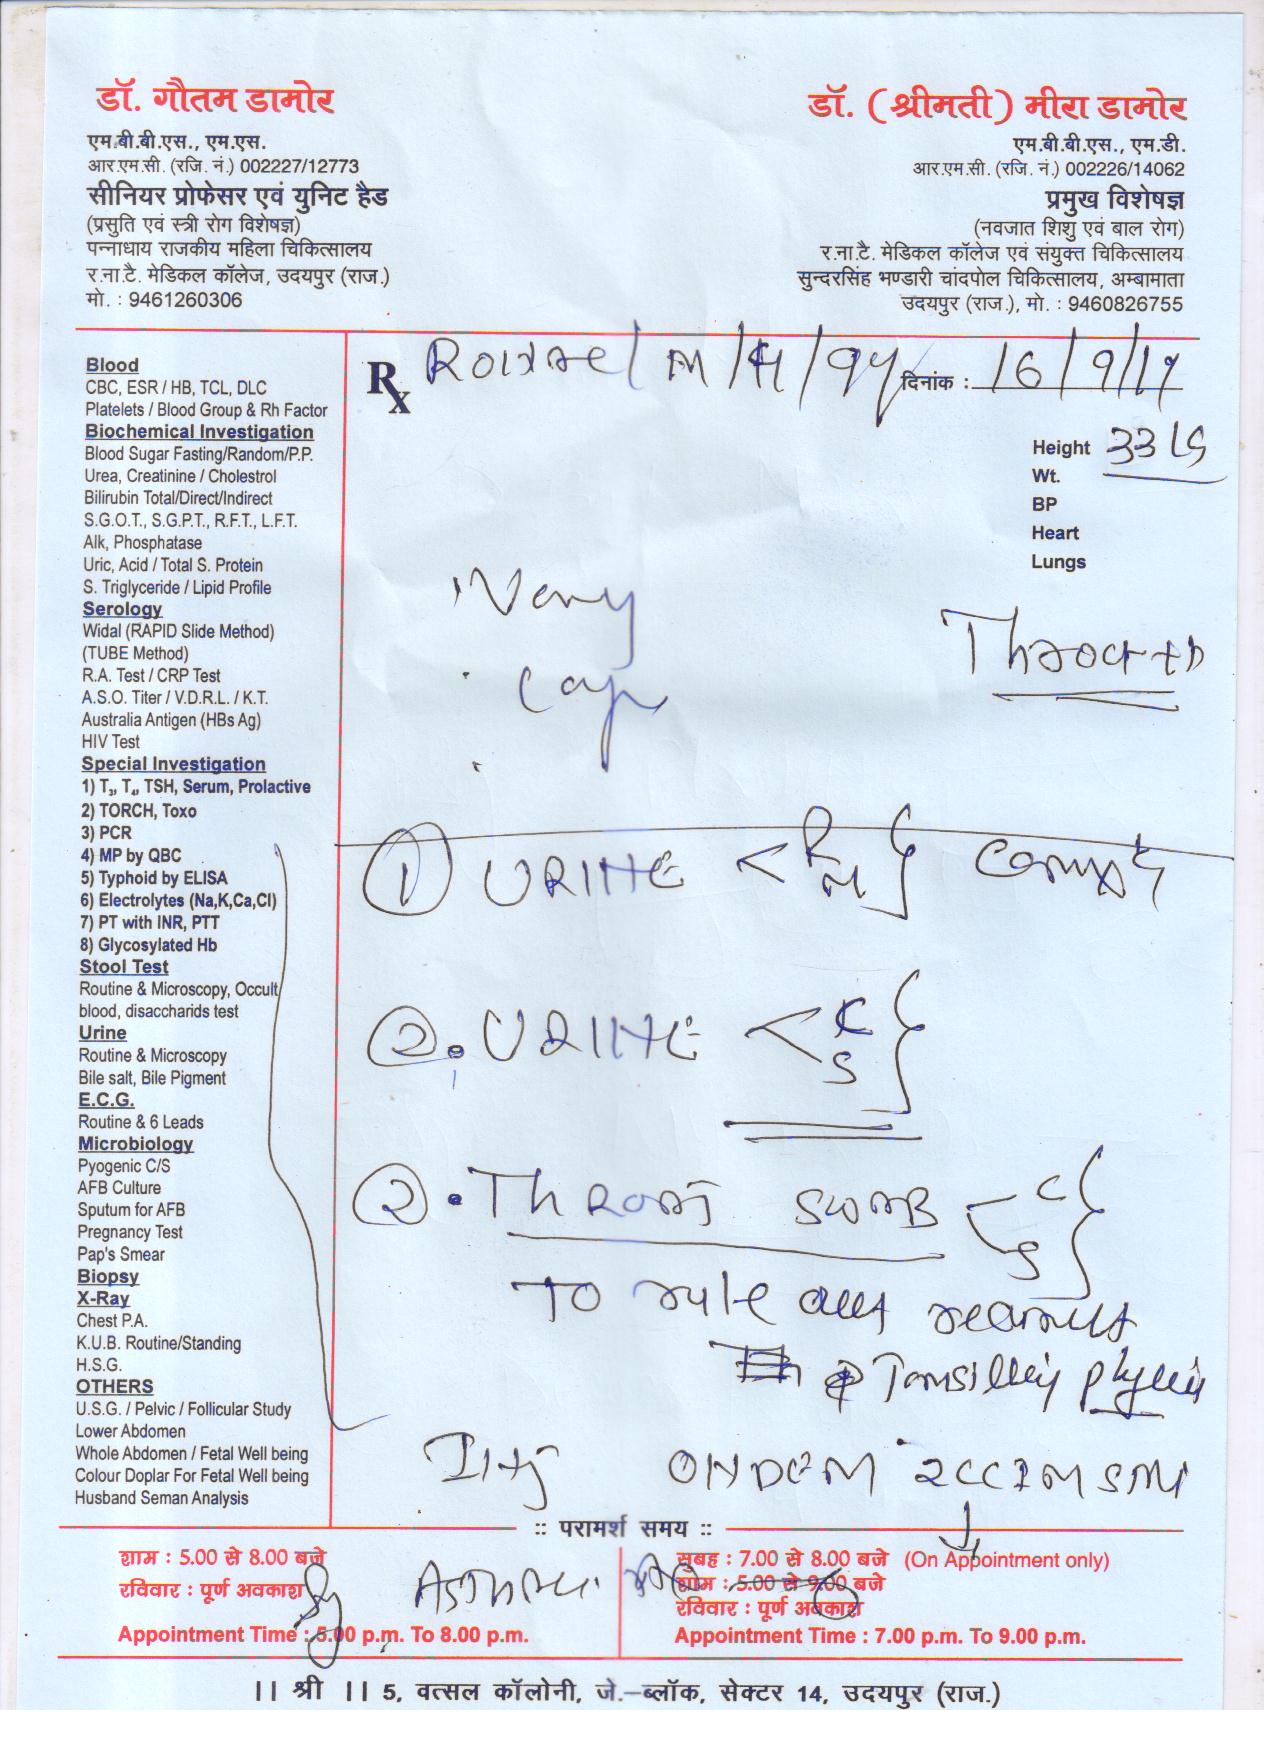 डॉ. गौतम डामोर
एम.बी.बी.एस., एम.एस.
आर.एम.सी. (रजि. नं.) 002227/12773
सीनियर प्रोफेसर एवं युनिट हैड
(प्रसुति एवं स्त्री रोग विशेषज्ञ)
पन्नाधाय राजकीय महिला चिकित्सालय
र.ना.टै. मेडिकल कॉलेज, उदयपुर (राज.)
मो. : 9461260306
डॉ. (श्रीमती) मीरा डामोर
एम.बी.बी.एस., एम.डी.
आर.एम.सी. (रजि. नं.) 002226/14062
प्रमुख विशेषज्ञ
(नवजात शिशु एवं बाल रोग)
र.ना.टै. मेडिकल कॉलेज एवं संयुक्त चिकित्सालय
सुन्दरसिंह भण्डारी चांदपोल चिकित्सालय, अम्बामाता
उदयपुर (राज.), मो. : 9460826755
Blood
CBC, ESR / HB, TCL, DLC
Platelets / Blood Group & Rh Factor
Biochemical Investigation
Blood Sugar Fasting/Random/P.P.
Urea, Creatinine / Cholestrol
Bilirubin Total/Direct/Indirect
S.G.O.T., S.G.P.T., R.F.T., L.F.T.
Alk, Phosphatase
Uric, Acid / Total S. Protein
S. Triglyceride / Lipid Profile
Serology
Widal (RAPID Slide Method)
(TUBE Method)
R.A. Test / CRP Test
A.S.O. Titer / V.D.R.L. / K.T.
Australia Antigen (HBs Ag)
HIV Test
Special Investigation
1) T3, T4, TSH, Serum, Prolactive
2) TORCH, Toxo
3) PCR
4) MP by QBC
5) Typhoid by ELISA
6) Electrolytes (Na,K,Ca,Cl)
7) PT with INR, PTT
8) Glycosylated Hb
Stool Test
Routine & Microscopy, Occult
blood, disaccharids test
Urine
Routine & Microscopy
Bile salt, Bile Pigment
E.C.G.
Routine & 6 Leads
Microbiology
Pyogenic C/S
AFB Culture
Sputum for AFB
Pregnancy Test
Pap's Smear
Biopsy
X-Ray
Chest P.A.
K.U.B. Routine/Standing
H.S.G.
OTHERS
U.S.G. / Pelvic / Follicular Study
Lower Abdomen
Whole Abdomen / Fetal Well being
Colour Doplar For Fetal Well being
Husband Seman Analysis
Rx
दिनांक : 16/9/17
Height 33
Wt.
BP
Heart
Lungs
① URINE < R M }
②. URINE < C S }
②. THROAT SWAB < C S }
To rule out
Inj ONDEM 2CC IM
:: परामर्श समय ::
शाम : 5.00 से 8.00 बजे
रविवार : पूर्ण अवकाश
Appointment Time : 5.00 p.m. To 8.00 p.m.
सुबह : 7.00 से 8.00 बजे (On Appointment only)
शाम : 5.00 से 9.00 बजे
रविवार : पूर्ण अवकाश
Appointment Time : 7.00 p.m. To 9.00 p.m.
।। श्री ।। 5, वत्सल कॉलोनी, जे.-ब्लॉक, सेक्टर 14, उदयपुर (राज.)